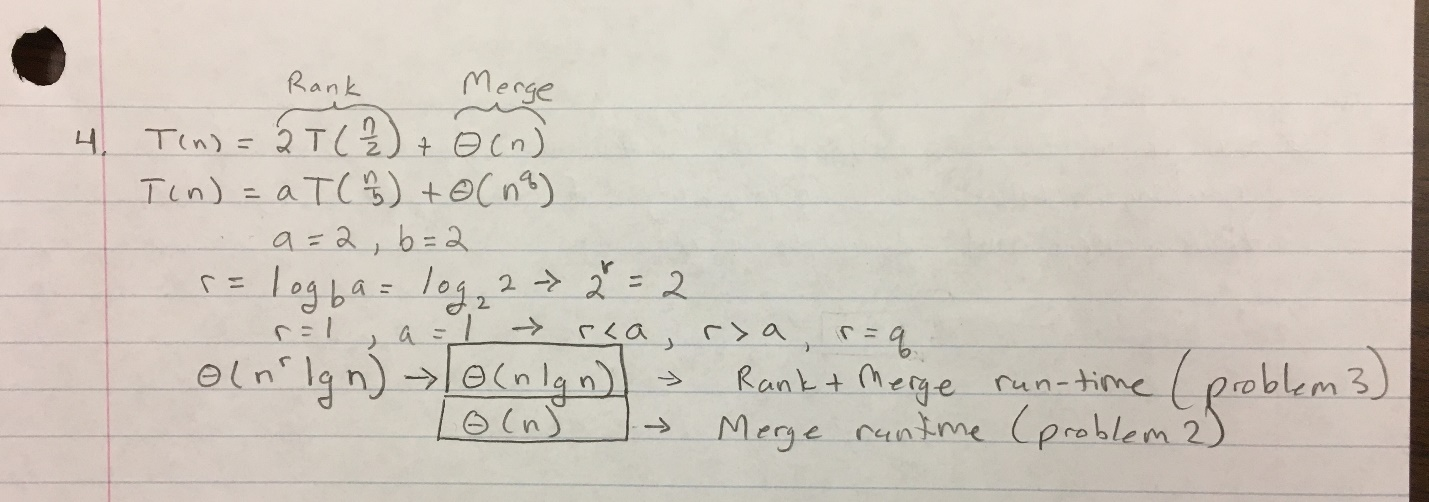 Rank Merge
4. T(n) = 2T(n/2) + Θ(n)
T(n) = aT(n/b) + Θ(n^q)
a = 2, b = 2
r = log_b a = log_2 2 → 2^r = 2
r = 1, a = 1 → r < a, r > a, r = q
Θ(n^r lg n) → Θ(n lg n) → Rank + Merge run-time (problem 3)
Θ(n) → Merge runtime (problem 2)